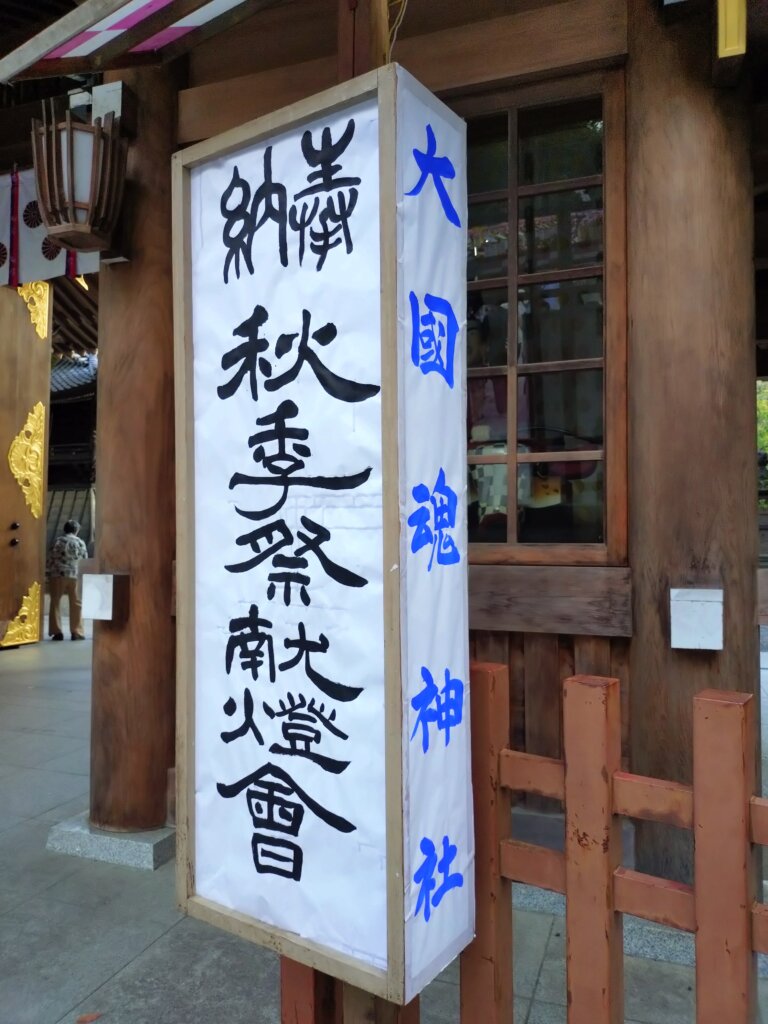 奉納
秋季祭献燈會
大國魂神社